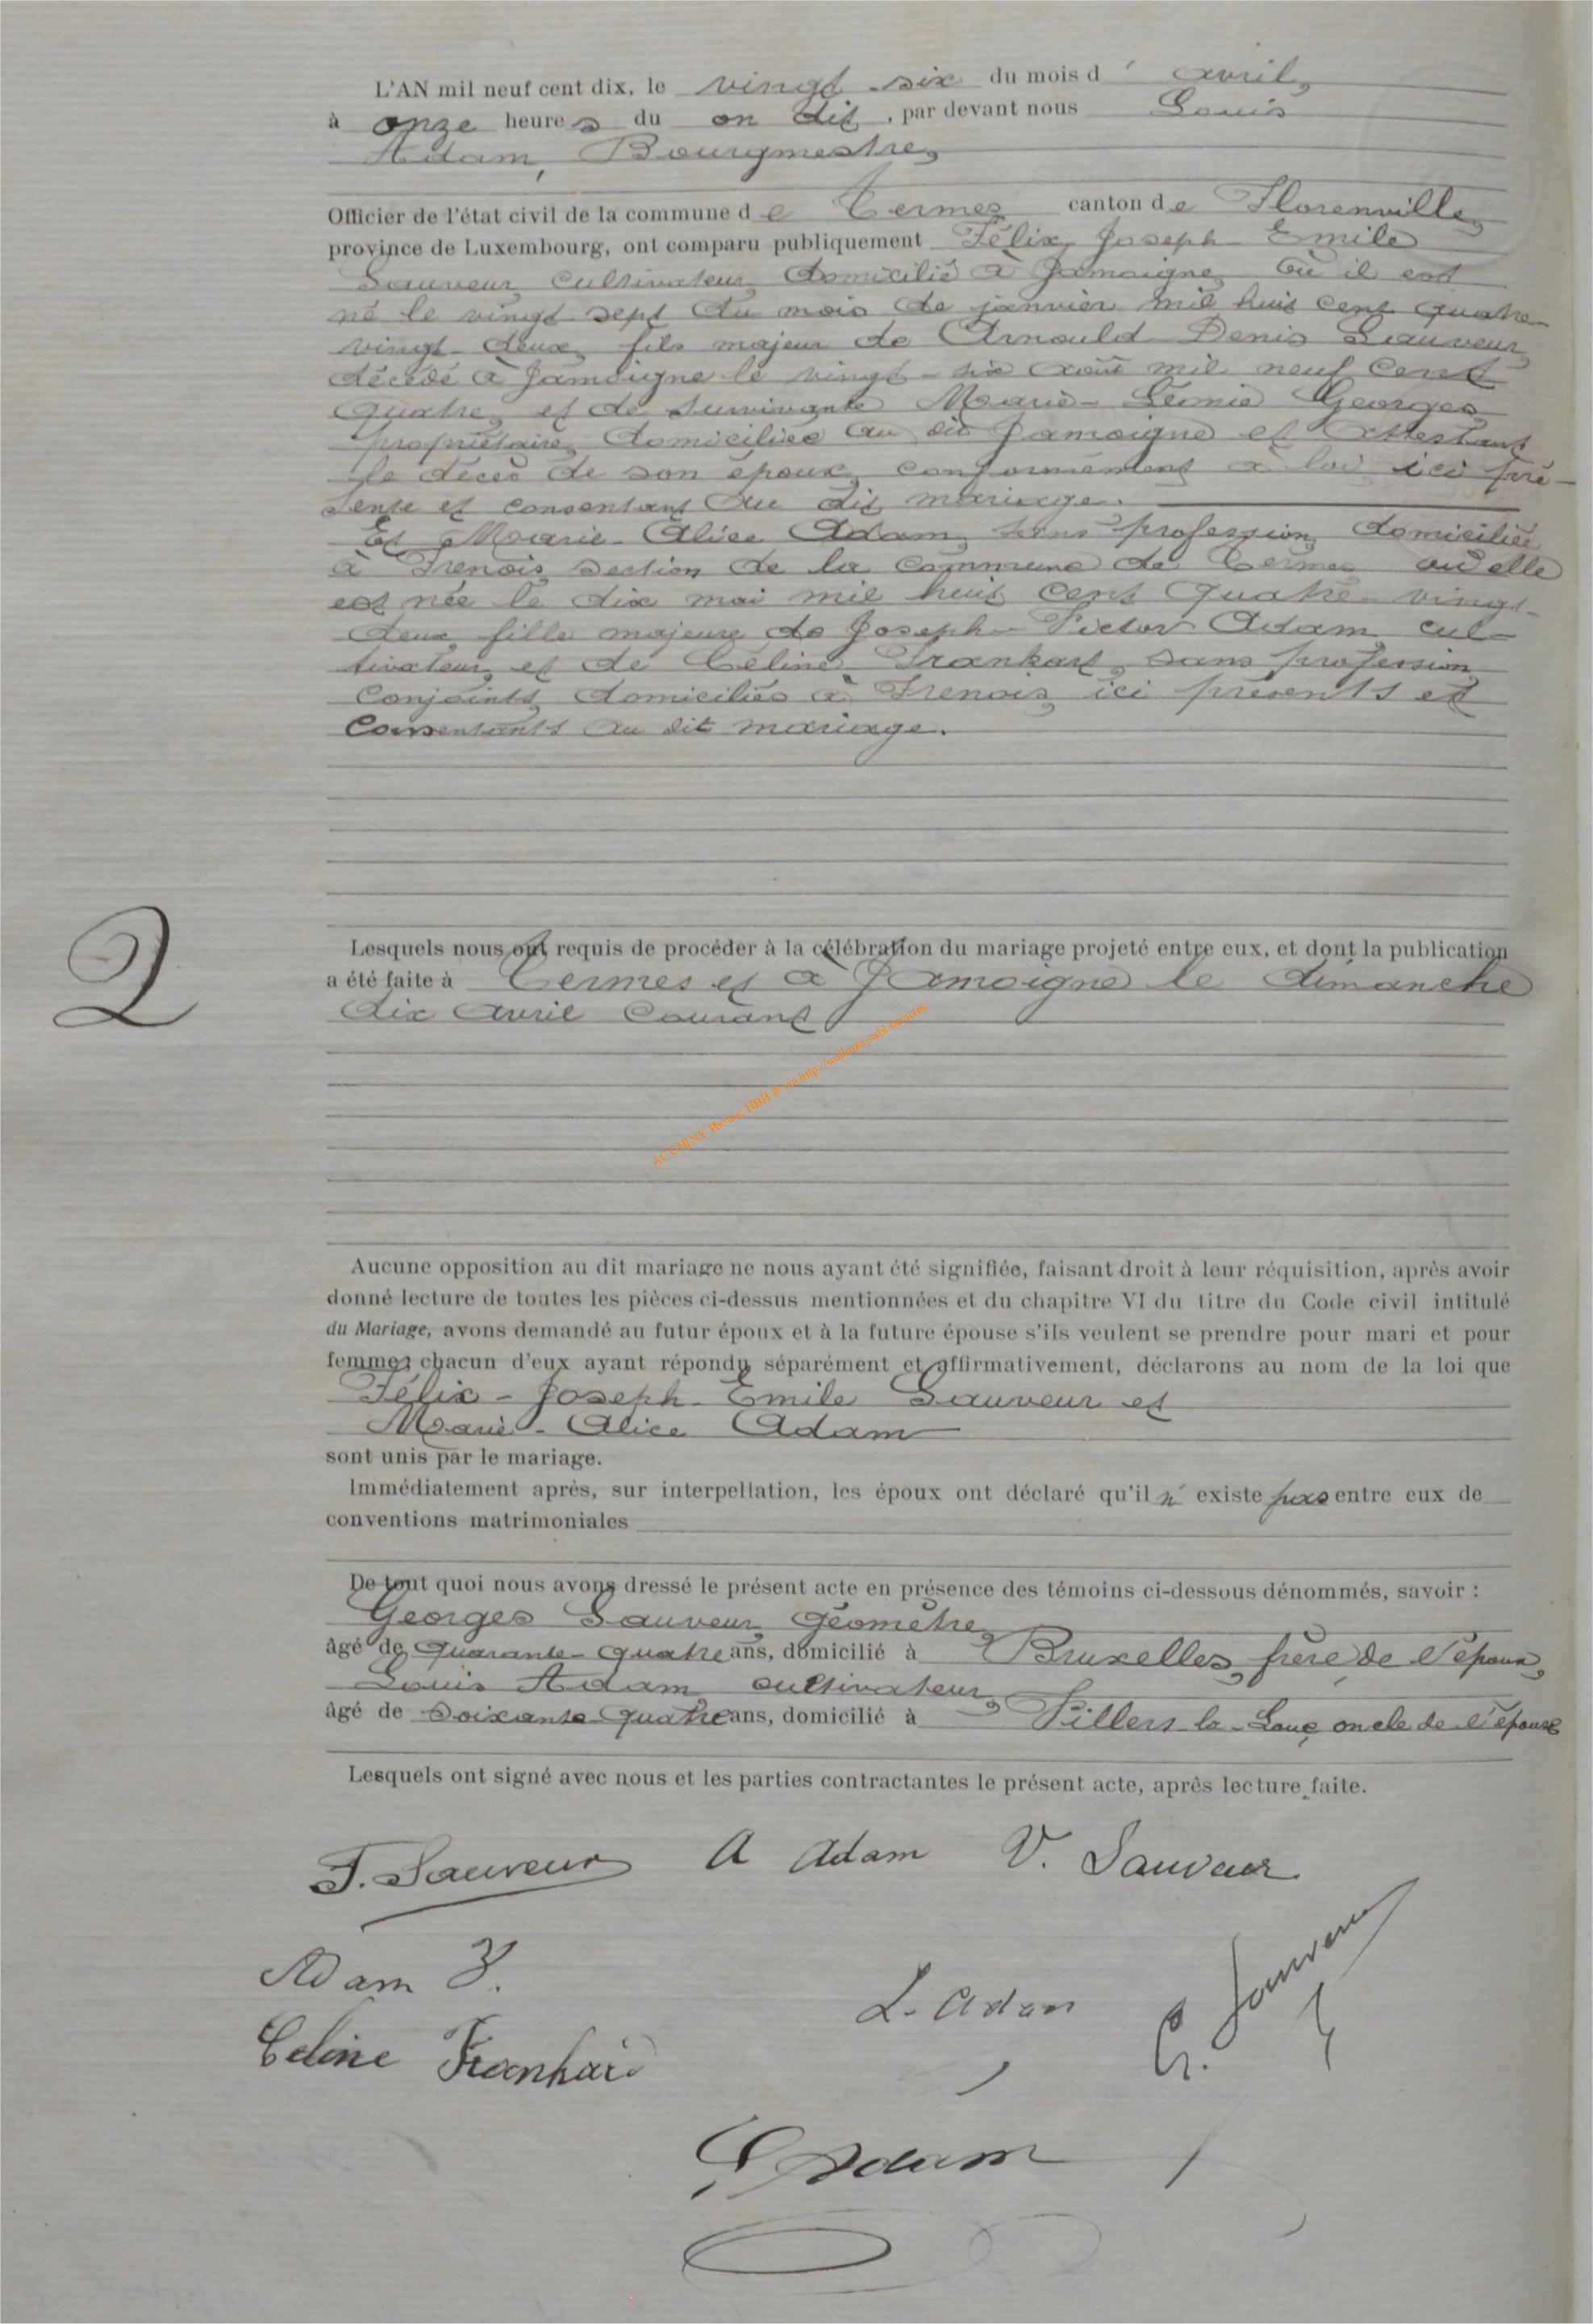 L'AN mil neuf cent dix, le vingt-six du mois d' avril,
à onze heures du on dit, par devant nous Louis
Adam, Bourgmestre,
Officier de l'état civil de la commune de Termes canton de Florenville,
province de Luxembourg, ont comparu publiquement Félix, Joseph Emile
Sauveur, cultivateur, domicilié à Jamoigne, où il est
né le vingt sept du mois de janvier mil huit cent quatre-
vingt-deux, fils majeur de Arnould Denis Sauveur,
décédé à Jamoigne le vingt-six août mil neuf cent
quatre, et de survivante Marie-Léonie Georges,
propriétaire, domiciliée au dit Jamoigne et attestant
le décès de son époux, conformément à loi ici pré-
sente et consentant au dit mariage.
Et Marie-Alice Adam, sans profession, domiciliée
à Frenois section de la commune de Termes où elle
est née le dix mai mil huit cent quatre-vingt-
deux, fille majeure de Joseph-Victor Adam, cul-
tivateur, et de Céline Frankart, sans profession,
conjoints, domiciliés à Frenois, ici présents et
consentants au dit mariage.
2
Lesquels nous ont requis de procéder à la célébration du mariage projeté entre eux, et dont la publication
a été faite à Termes et à Jamoigne le dimanche
dix avril courant
Aucune opposition au dit mariage ne nous ayant été signifiée, faisant droit à leur réquisition, après avoir
donné lecture de toutes les pièces ci-dessus mentionnées et du chapitre VI du titre du Code civil intitulé
du Mariage, avons demandé au futur époux et à la future épouse s'ils veulent se prendre pour mari et pour
femme; chacun d'eux ayant répondu séparément et affirmativement, déclarons au nom de la loi que
Félix-Joseph-Emile Sauveur et
Marie-Alice Adam
sont unis par le mariage.
Immédiatement après, sur interpellation, les époux ont déclaré qu'il n' existe pas entre eux de
conventions matrimoniales
De tout quoi nous avons dressé le présent acte en présence des témoins ci-dessous dénommés, savoir :
Georges Sauveur, géomètre,
âgé de quarante-quatre ans, domicilié à Bruxelles, frère de l'époux,
Louis Adam, cultivateur,
âgé de soixante quatre ans, domicilié à Villers la-Loue, oncle de l'épouse
Lesquels ont signé avec nous et les parties contractantes le présent acte, après lecture faite.
F. Sauveur A Adam V. Sauveur
Adam V. L. Adam G. Sauveur
Celine Frankart
L Adam